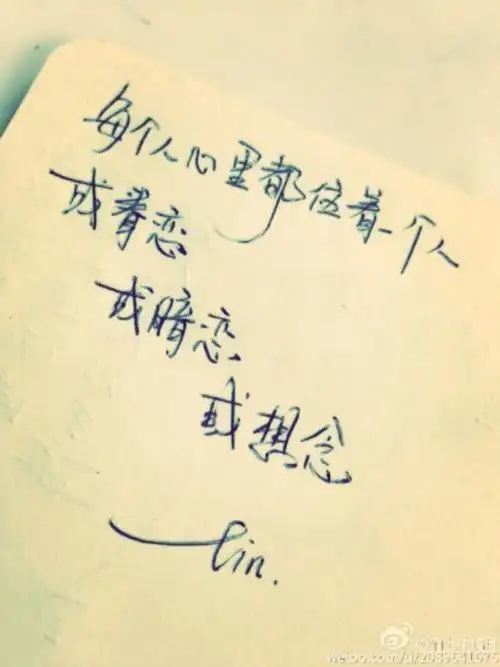 每个人心里都住着一个人
或眷恋
或暗恋
或想念
—lin.